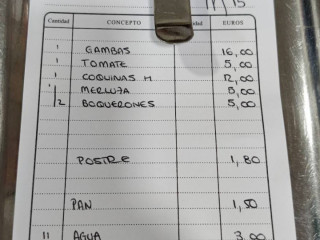 17 / 15
Cantidad CONCEPTO idad EUROS
1 GAMBAS 16,00
1 TOMATE 5,00
1 COQUINAS M 12,00
1/2 MERLUZA 8,00
1/2 BOQUERONES 5,00
POSTRE 1,80
PAN 1,50
11 AGUA 3,00